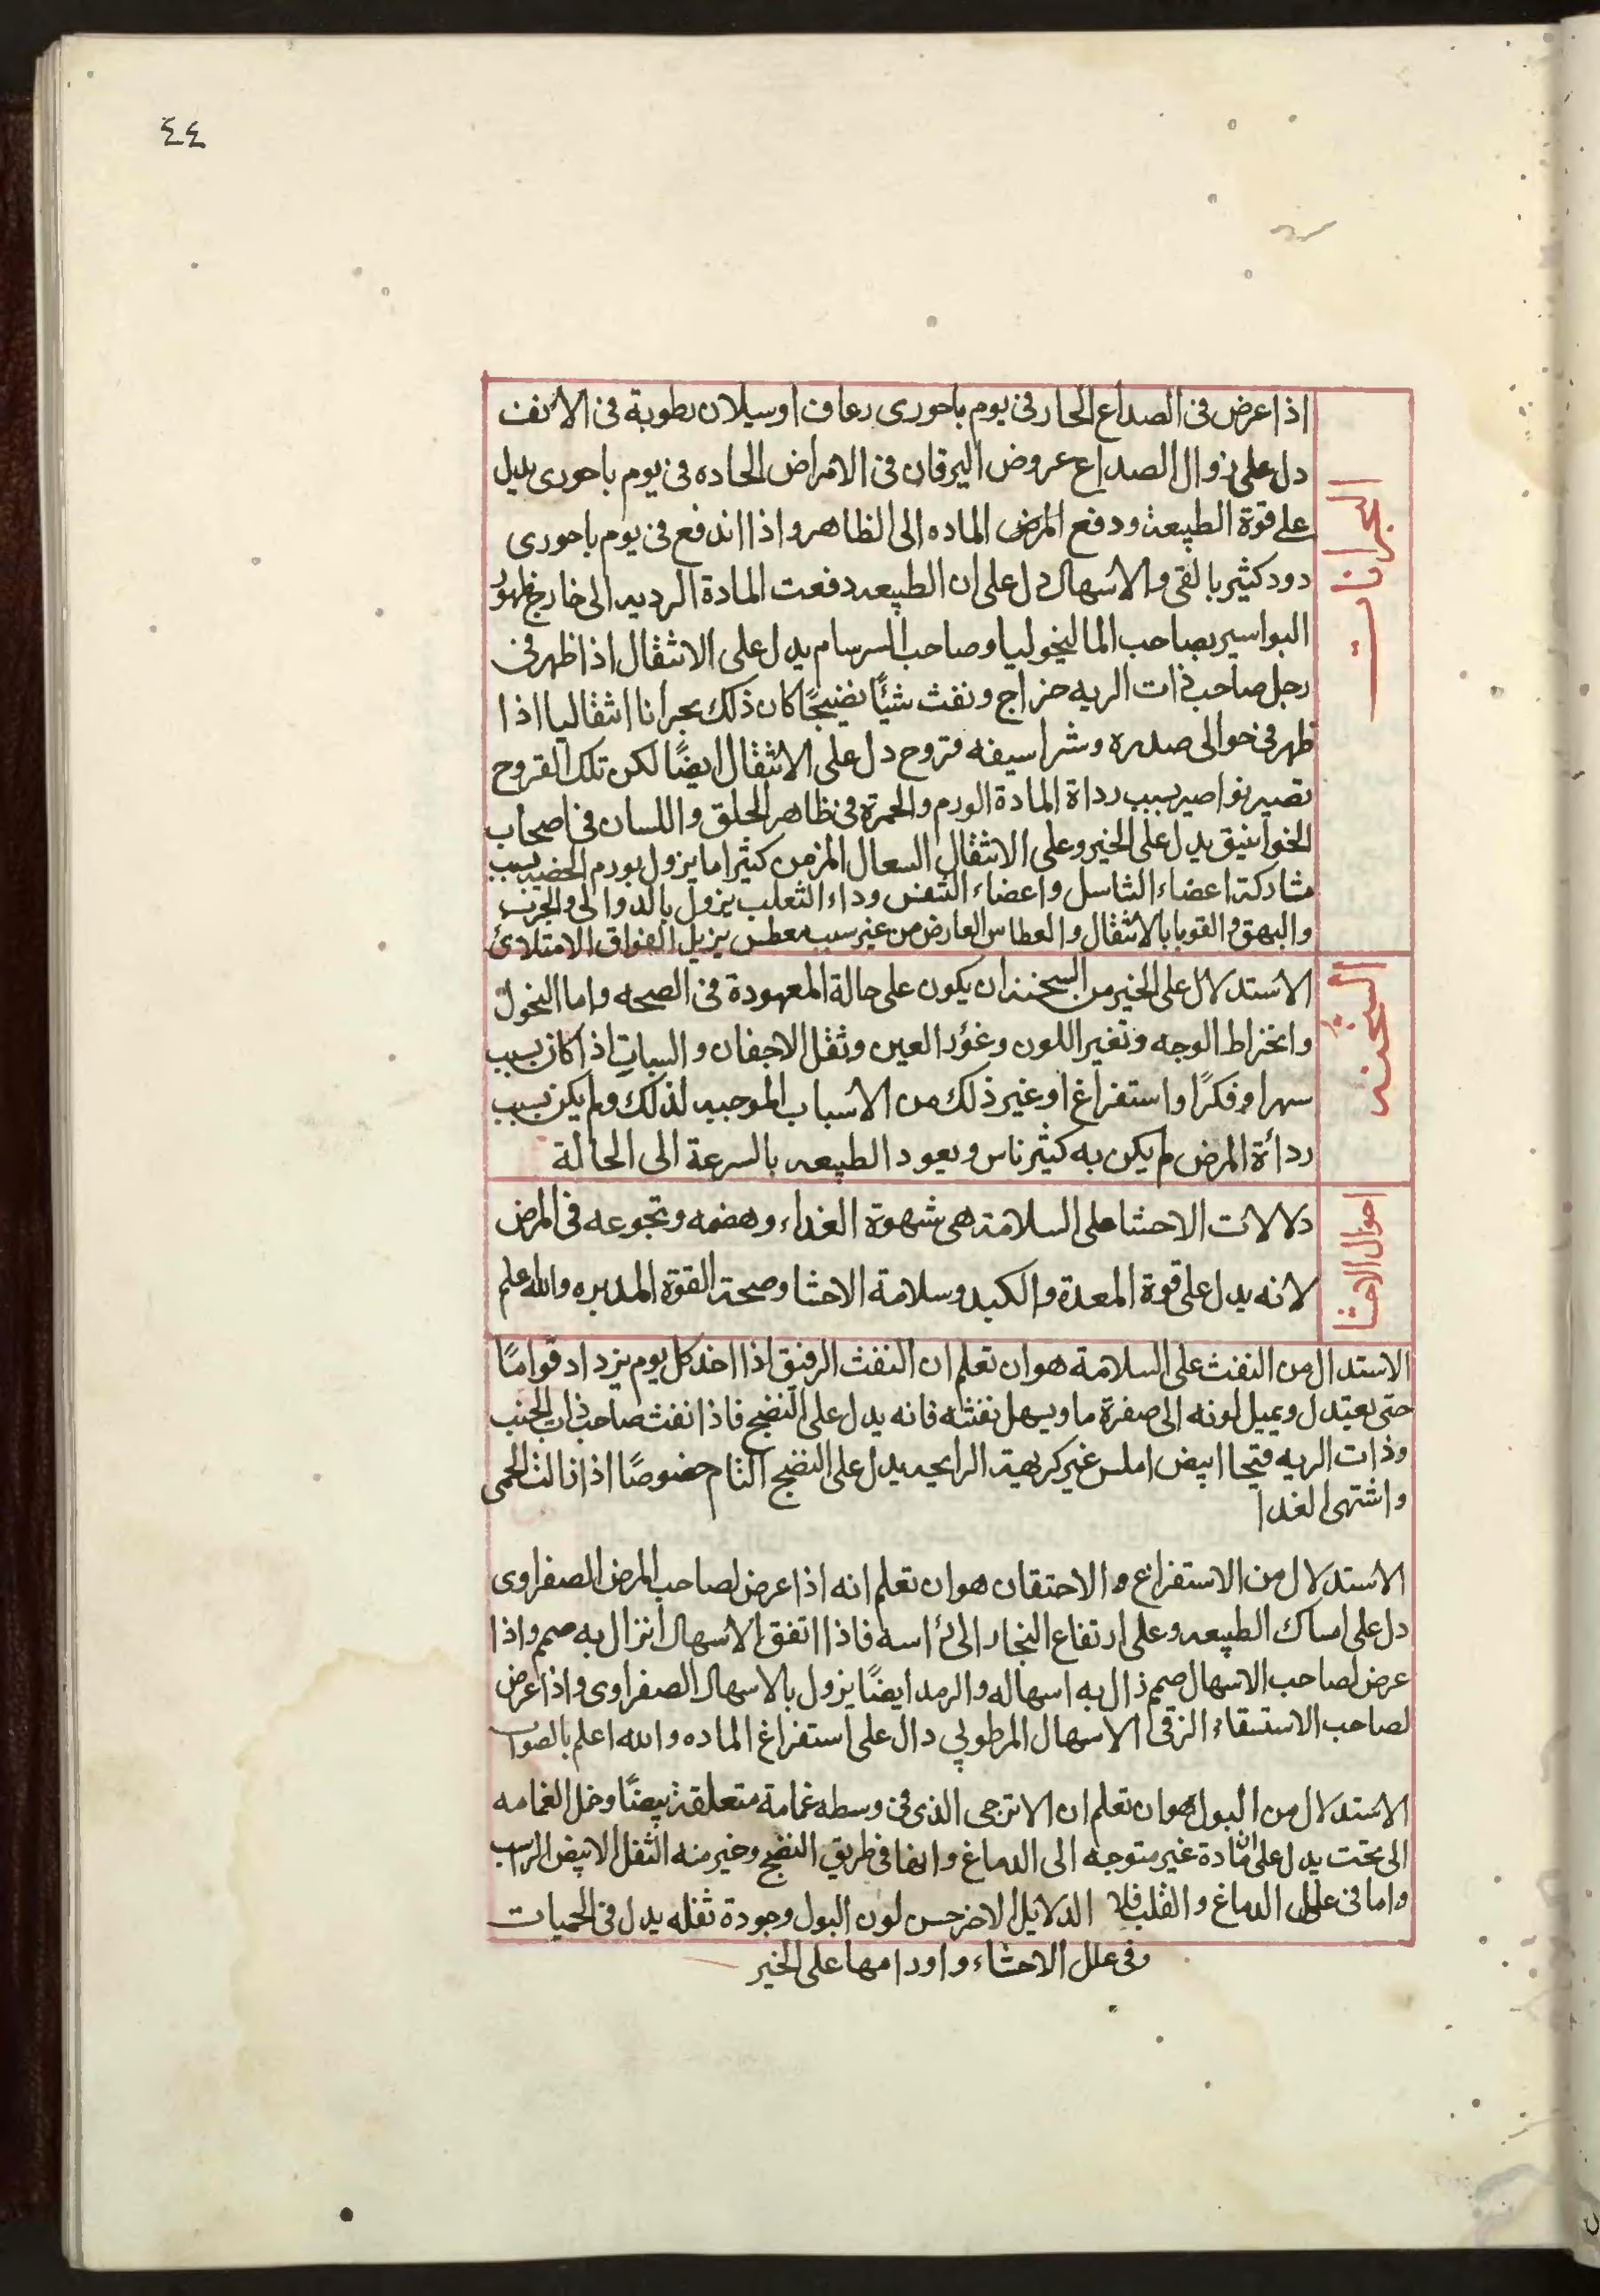 ٤٤
البحرانات
اذا عرض فى الصداع الحار فى يوم باحورى رعاف او سيلان رطوبة فى الانف
دل على زوال الصداع عروض اليرقان فى الامراض الحاده فى يوم باحورى يدل
على قوة الطبيعة ودفع المرض الماده الى الظاهر واذا اندفع فى يوم باحورى
دود كثير بالقى والاسهال دل على ان الطبيعه دفعت المادة الرديه الى خارج ظهور
البواسير بصاحب الماليخوليا وصاحب السرسام يدل على الانتقال اذا ظهر فى
رجل صاحب ذات الريه خراج ونفث شيئًا نضيجًا كان ذلك بحرانا انتقاليا اذا
ظهر فى حوالى صدره وشراسيفه قروح دل على الانتقال ايضًا لكن تلك القروح
تصير نواصير بسبب رداة المادة الورم والحمرة فى ظاهر الحلق واللسان فى اصحاب
الخوانيق يدل على الخير وعلى الانتقال السعال المزمن كثيرا ما يزول بورم الخصيه بسبب
مشاركة اعضاء التناسل واعضاء التنفس وداء الثعلب يزول بالدوالى والجرب
والبهق والقوبا بالانتقال والعطاس العارض من غير سبب معطس يزيل الفواق الامتلائ
السحنه
الاستدلال على الخير من السحنة ان يكون على حالة المعهودة فى الصحه واما النحول
وانخراط الوجه وتغير اللون وغؤر العين وثقل الاجفان والسبات اذا كان بسبب
سهر او فكرًا واستفراغ او غير ذلك من الاسباب الموجبه لذلك ولم يكن بسبب
ردأة المرض لم يكن به كثير ناس ويعود الطبيعه بالسرعة الى الحالة
احوال الاحشا
دلالات الاحشا على السلامة هى شهوة الغداء وهضمه ونجوعه فى المرض
لانه يدل على قوة المعدة والكبد وسلامة الاحشا وصحة القوة المدبره والله علم
الاستدال من النفث على السلامة هو ان تعلم ان النفث الرقيق اذا اخد كل يوم يزداد قوامًا
حتى يعتدل ويميل لونه الى صفرة ما ويسهل نفثه فانه يدل على النضج فاذا نفث صاحب ذات الجنب
وذات الريه قيحا ابيض املس غير كريهة الرايحه يدل على النضج التام خصوصًا اذا نالث الحمى
واشتهى الغدا
الاستدلال من الاستفراغ والاحتقان هو ان تعلم انه اذا عرض لصاحب المرض الصفراوى
دل على امساك الطبيعه وعلى ارتفاع البخار الى رأسه فاذا اتفق الاسهال انزال به صمم واذا
عرض لصاحب الاسهال صمم زال به اسهاله والرمد ايضًا يزول بالاسهال الصفراوى واذا عرض
لصاحب الاستسقاء الزقى الاسهال المرطوبي دال على استفراغ الماده والله اعلم بالصواب
الاستدلال من البول هو ان تعلم ان الاترجى الذى فى وسطه غمامة متعلقة بيضًا وخل الغمامه
الى تحت يدل على ان مادة غير متوجه الى الدماغ وانها فى طريق النضج وخير منه الثفل الابيض الراسب
واما فى علل الدماغ والقلب فلا الدلايل الاخر حسن لون البول وجودة ثفله يدل فى الحميات
وفى علل الاحشاء واورامها على الخير